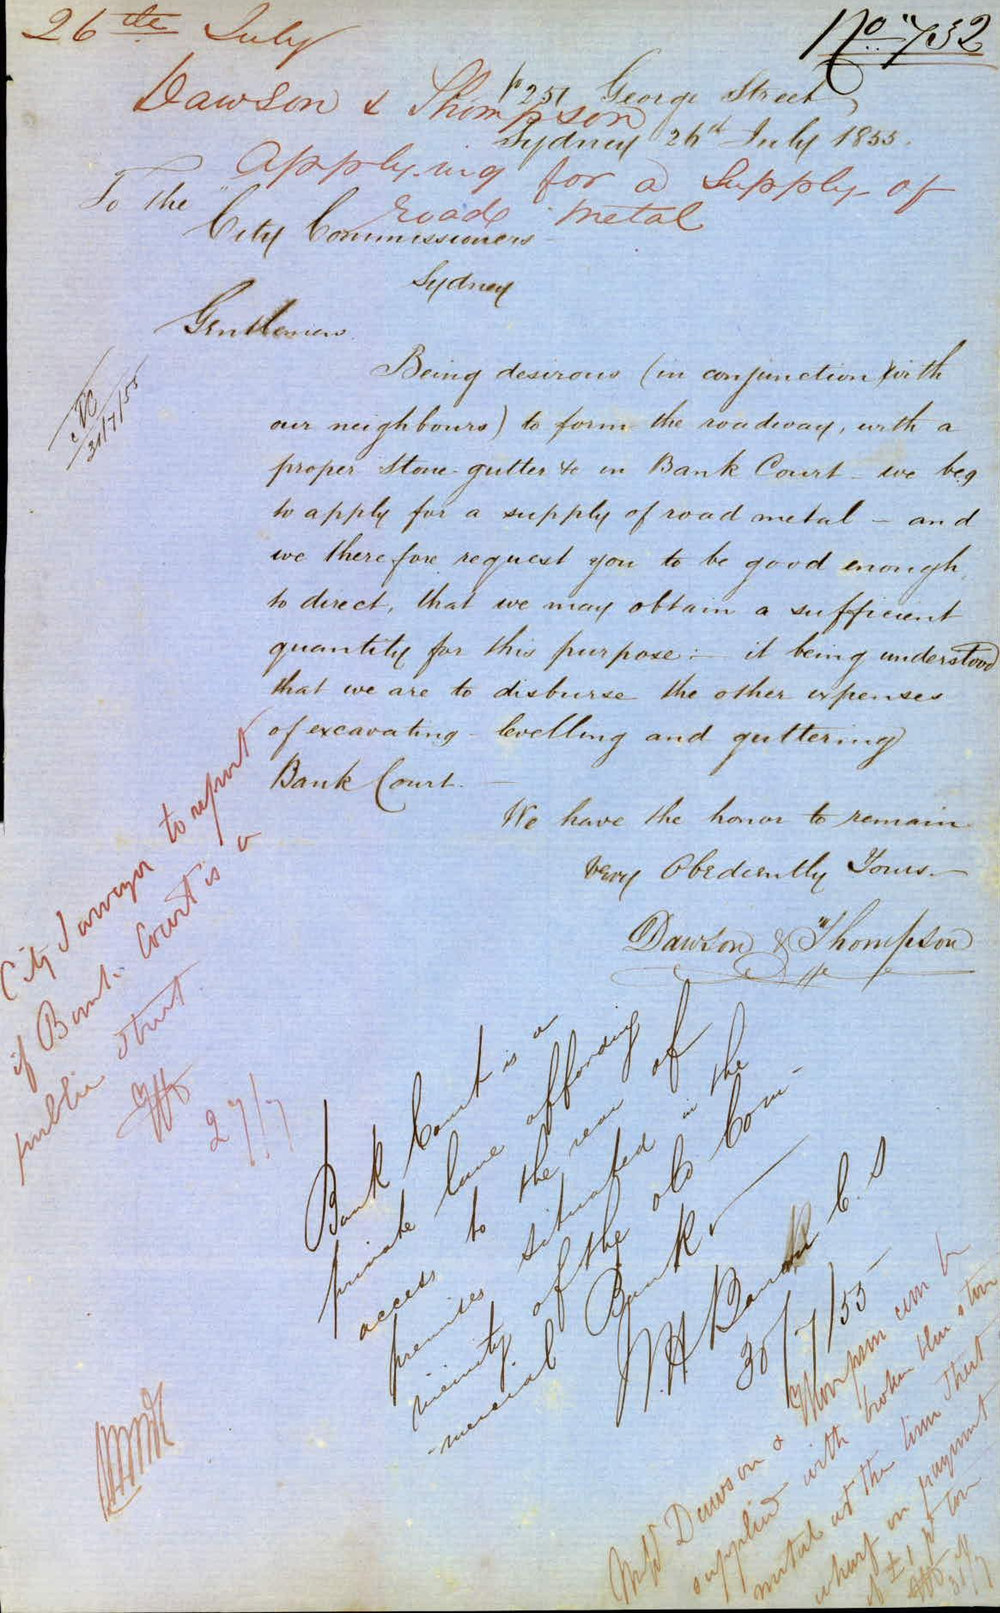 26th July
No 732
Dawson & Thompson
251 George Street
Sydney 26th July 1855.
Applying for a Supply of
road metal
To the
City Commissioners
Sydney
Gentlemen
Being desirous (in conjunction with
our neighbours) to form the roadway, with a
proper Stone gutter &c in Bank Court - we beg
to apply for a supply of road metal - and
we therefore request you to be good enough
to direct, that we may obtain a sufficient
quantity for this purpose :- it being understood
that we are to disburse the other expenses
of excavating - levelling and guttering
Bank Court. -
We have the honor to remain
Very Obediently Yours. -
Dawson & Thompson
31/7/55
City Surveyor to report
if Bank Court is a
public street
27/7
Bank Court is a
private lane affording
access to the rear of
premises situated in the
vicinity of the old Com-
-mercial Bank
C. S
30/7/55
Dawson & Thompson can be
supplied with broken blue stone
metal at the lime street
wharf on payment
of £1 pr ton
31/7